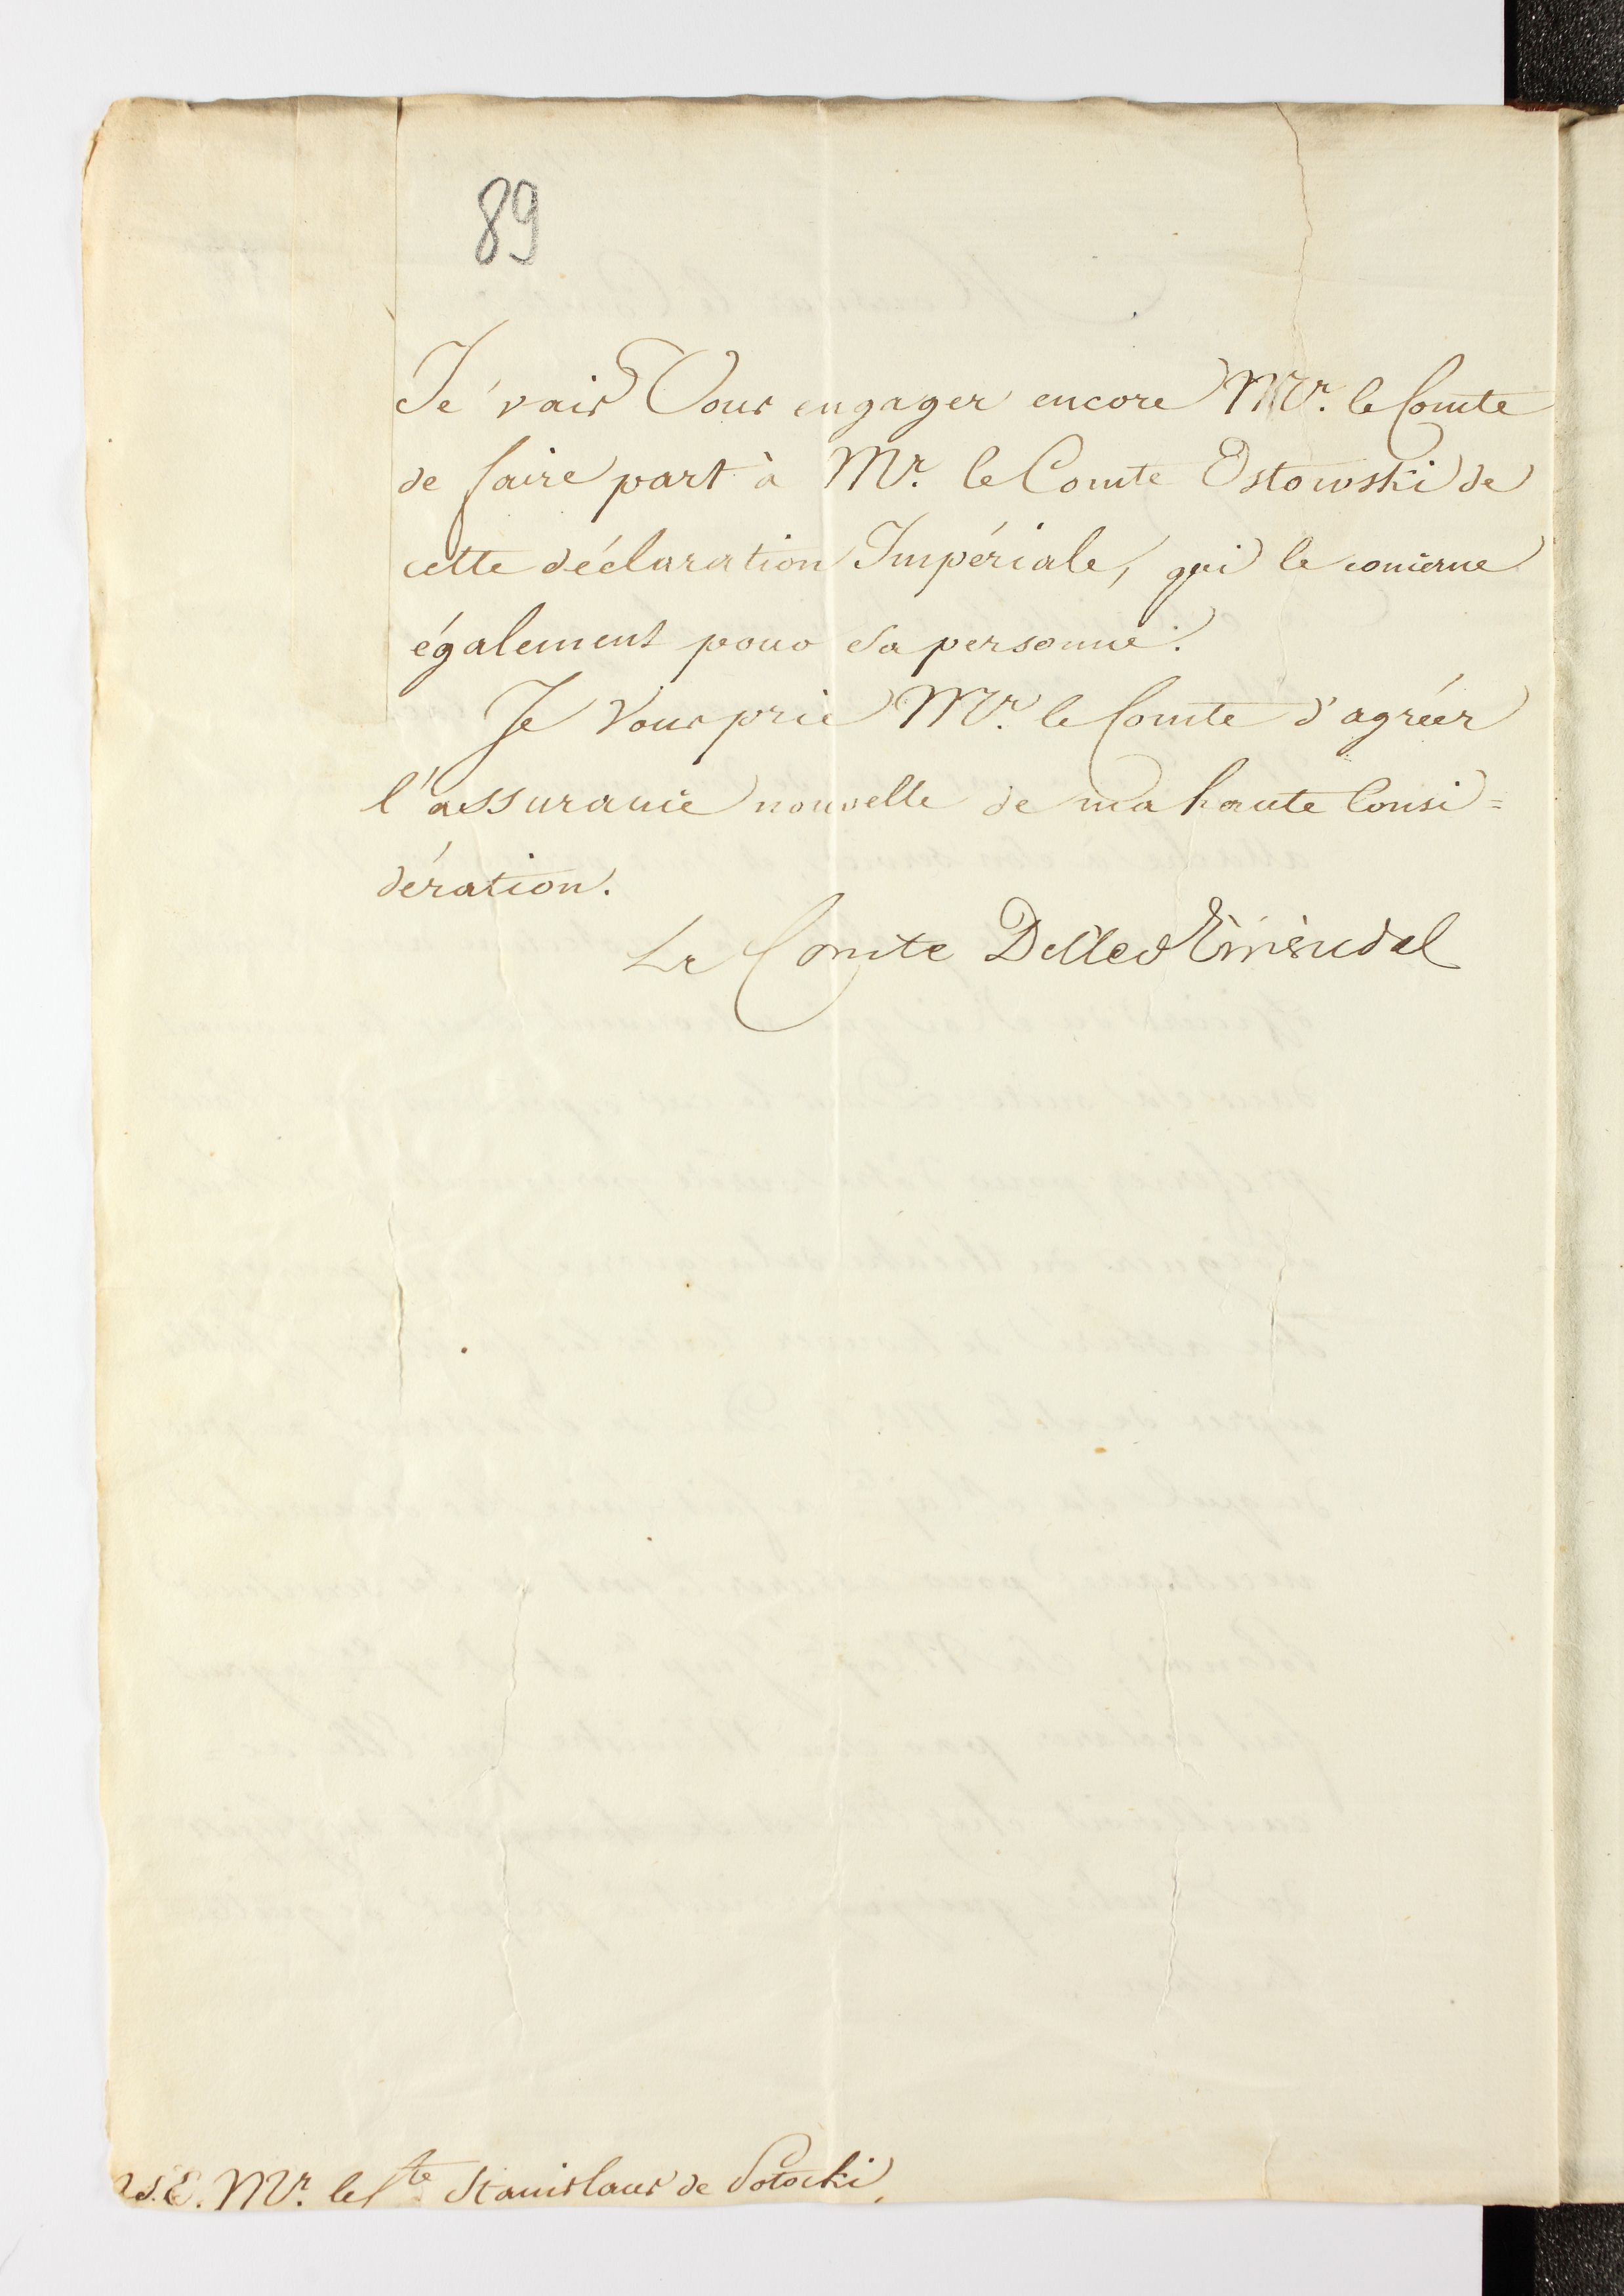 89
Je vais Vous engager encore Mr. le Comte
de faire part à Mr. le Comte Ostowski de
cette déclaration Impériale, qui le concerne
également pour Sa personne.
Je Vous prie Mr. le Comte d'agréér
l'assurance nouvelle de ma haute Consi=
dération.
Le Comte
a S. E. Mr. le Cte Stanislaus de Potocki